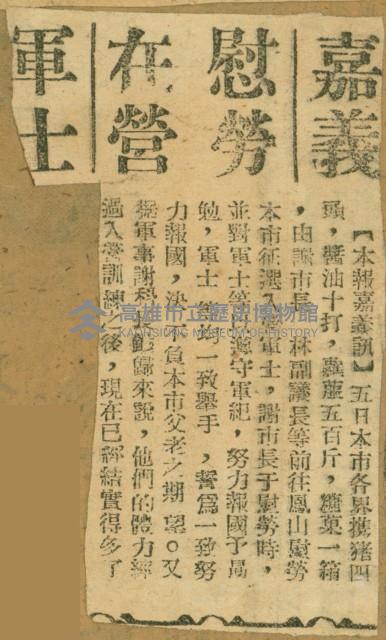 嘉義
慰勞
在營
軍士
【本報嘉義訊】五日本市各界携猪四
頭，醬油十打，蘿蔔五百斤，糖菓一箱
，由謝市長林副議長等前往鳳山慰勞
本市征選入軍士，謝市長于慰勞時，
並對軍士等守軍紀，努力報國予勗
勉，軍士一致舉手，誓爲一致努
力報國，決不負本市父老之期望。又
軍事謝科歸來說，他們的體力經
過入營訓練後，現在已經結實得多了
高雄市立歷史博物館
KAOHSIUNG MUSEUM OF HISTORY